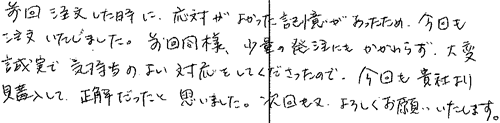 前回注文した時に、応対がよかった記憶があったため、今回も
注文いたしました。前回同様、少量の発注にもかかわらず、大変
誠実で気持ちのよい対応をしてくださったので、今回も貴社より
購入して、正解だったと思いました。次回も又、よろしくお願いいたします。